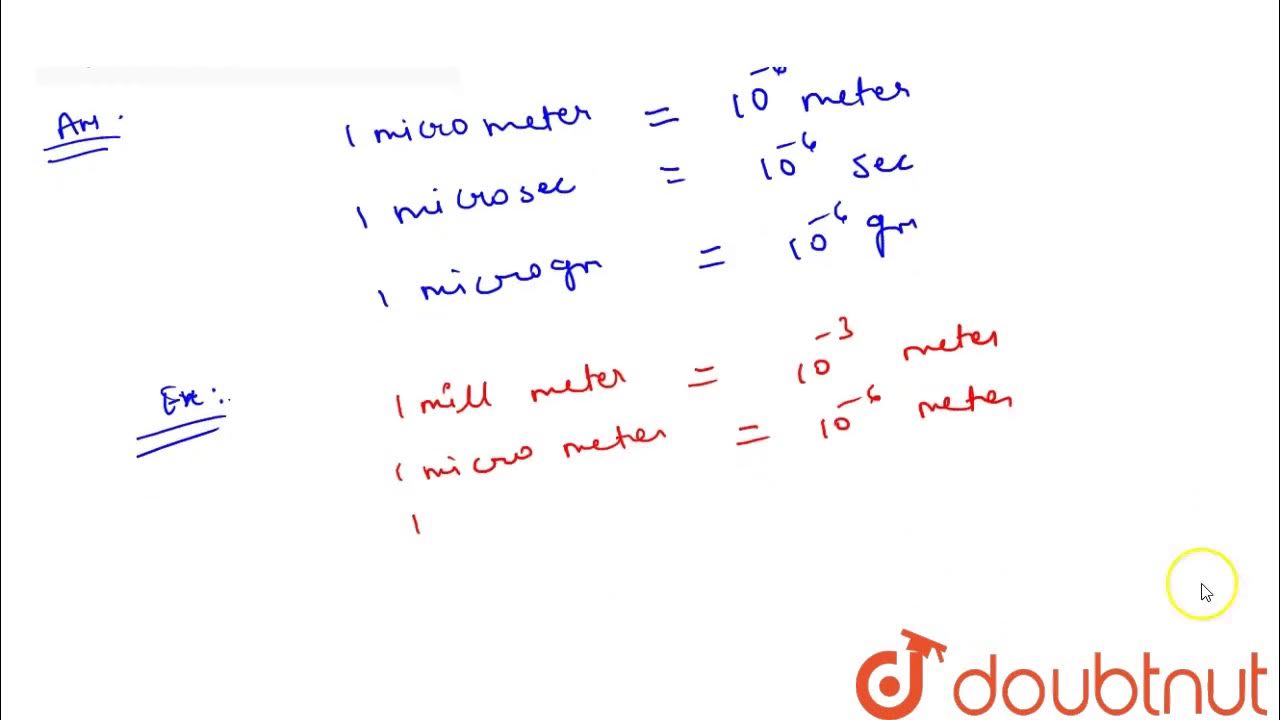 Ans.
1 micro meter = 10⁻⁶ meter
1 micro sec = 10⁻⁶ sec
1 micro gm = 10⁻⁶ gm
Ex:.
1 mill meter = 10⁻³ meter
1 micro meter = 10⁻⁶ meter
1
doubtnut